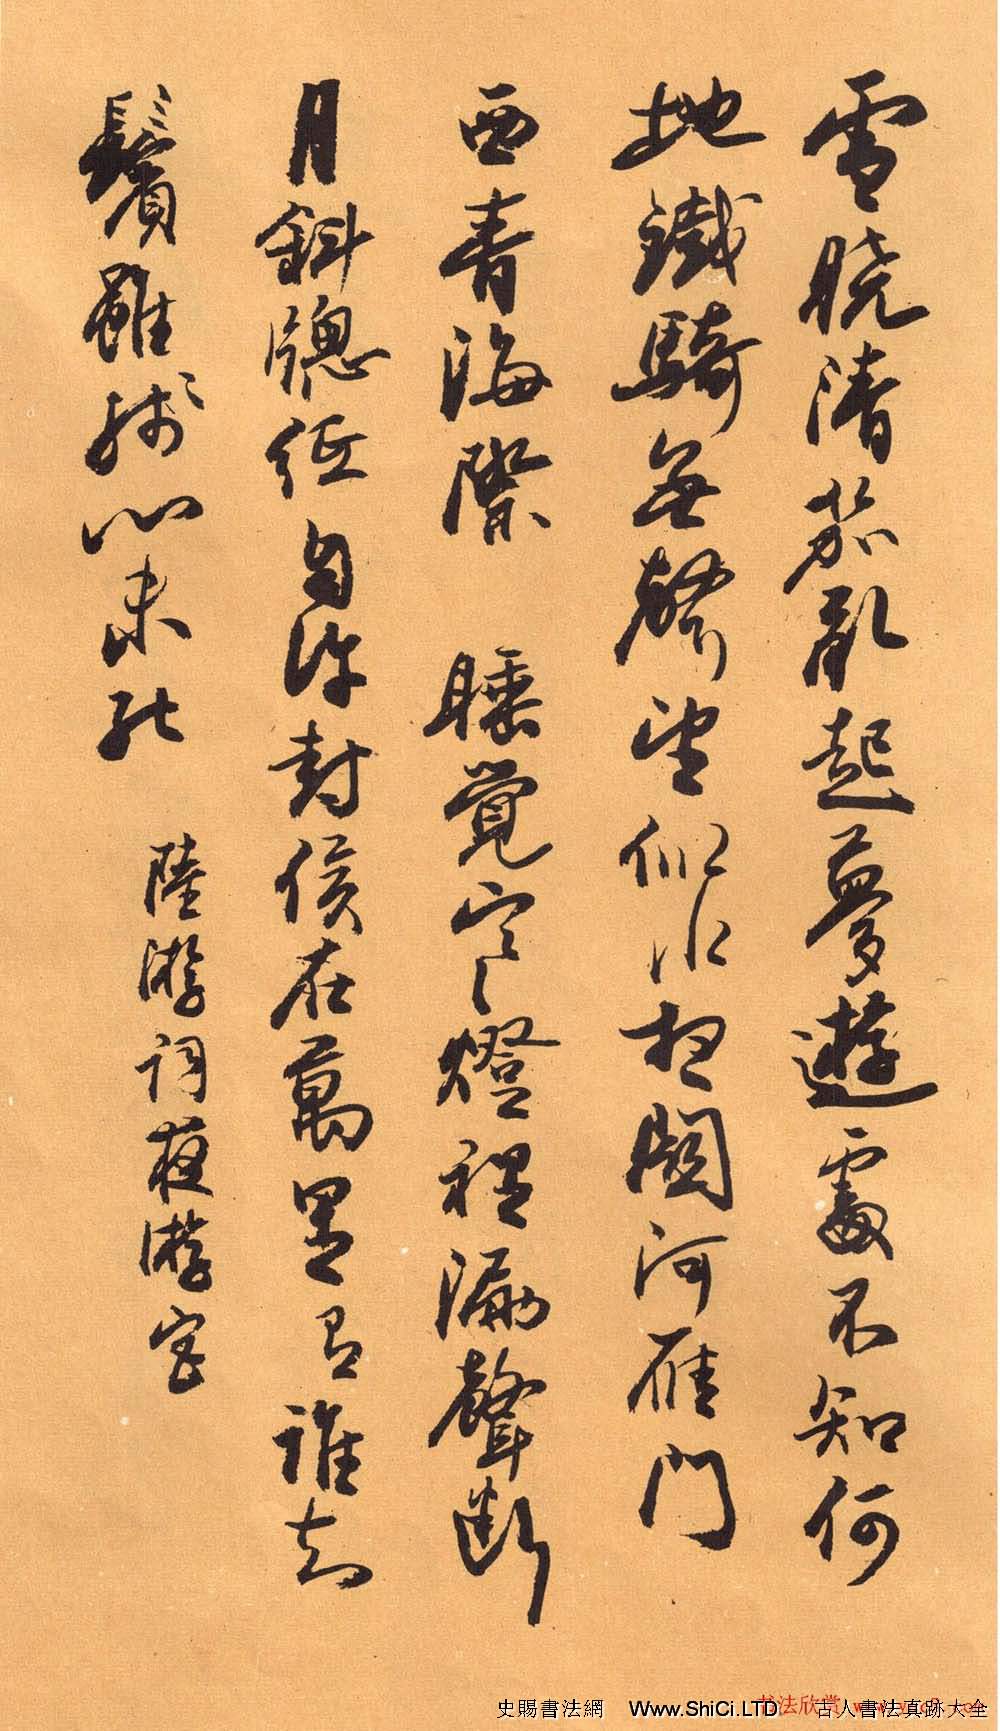 雪曉清笳亂起夢遊處不知何
地鐵騎無聲望似水想關河雁門
西青海際 睡覺寒燈裡漏聲斷
月斜牕紙自許封侯在萬里有誰知
鬢雖殘心未死 陸游詞夜游宮
史賜書法網 Www.ShiCi.LTD 古人書法真跡大全
书法欣赏